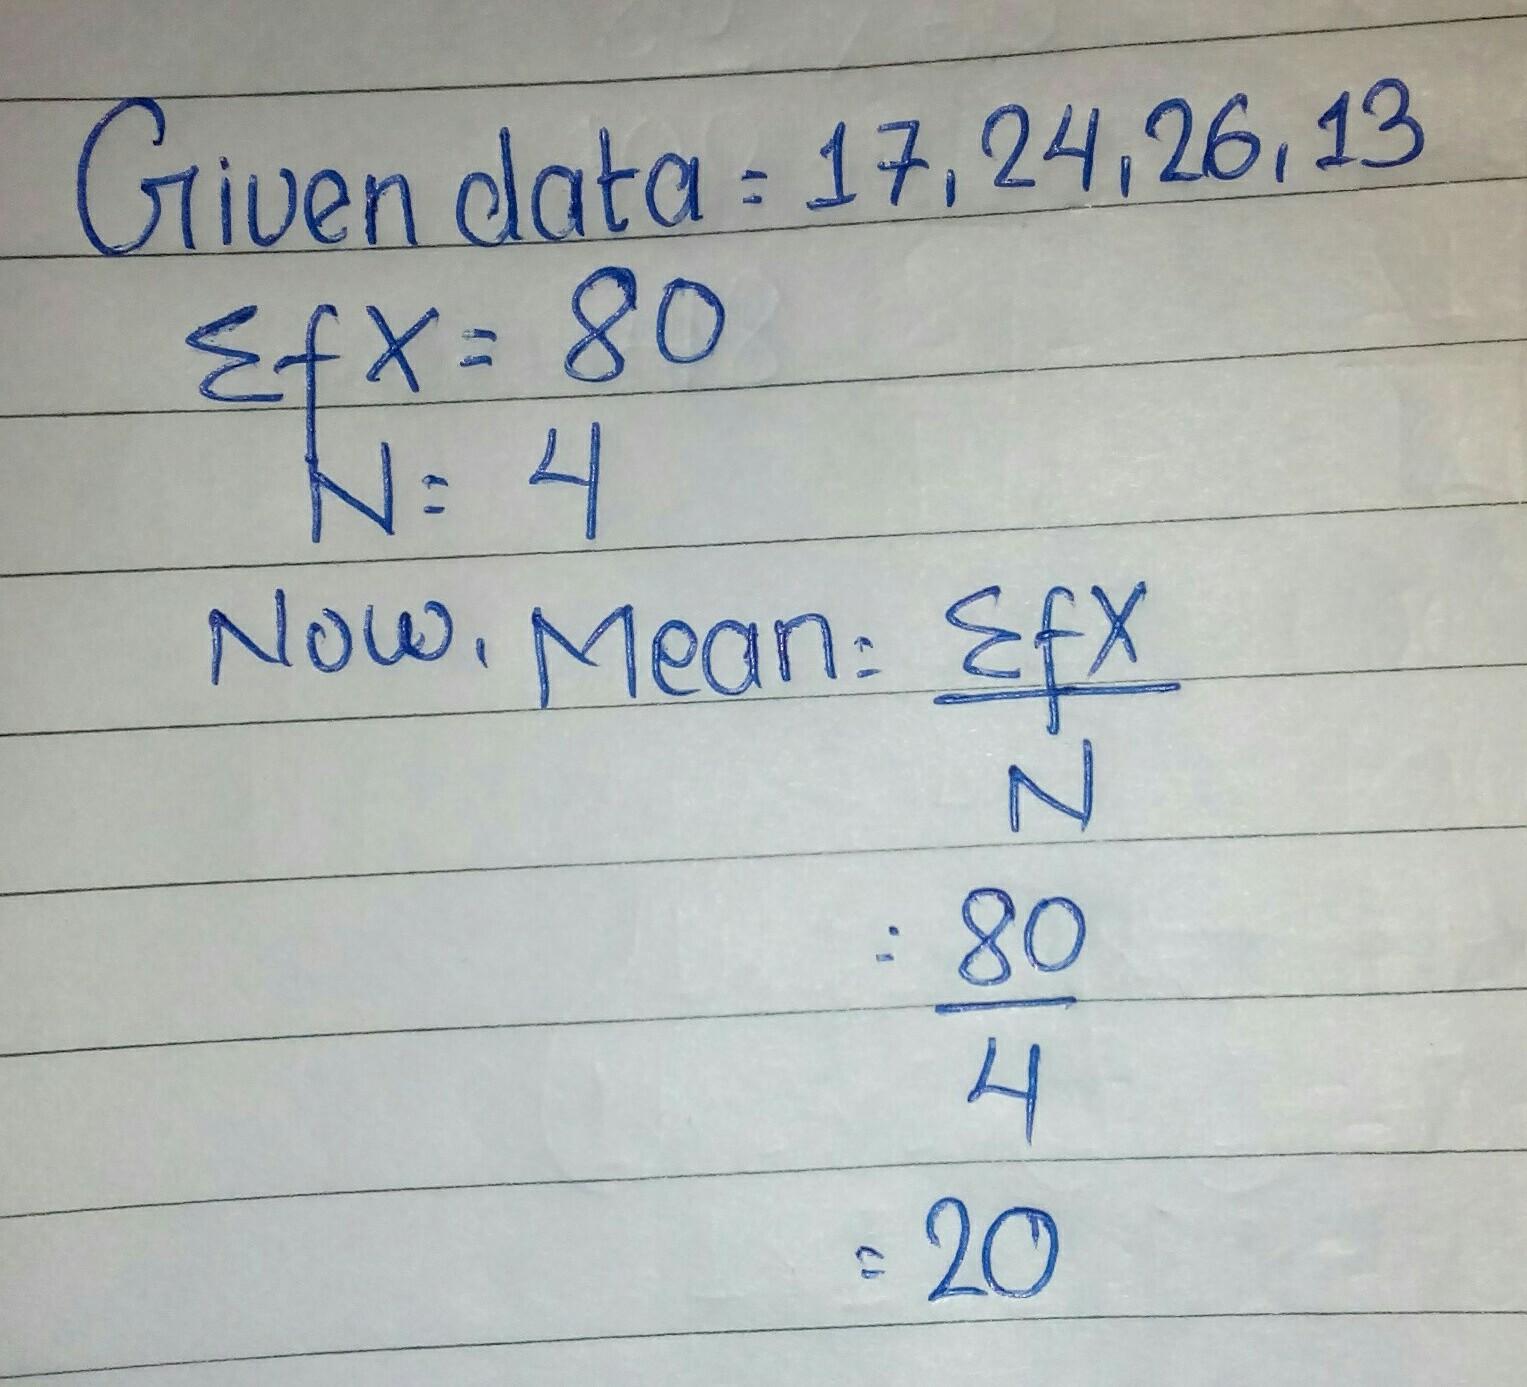 Given data = 17, 24, 26, 13
ΣfX = 80
N = 4
Now, Mean = ΣfX
N
= 80
4
= 20